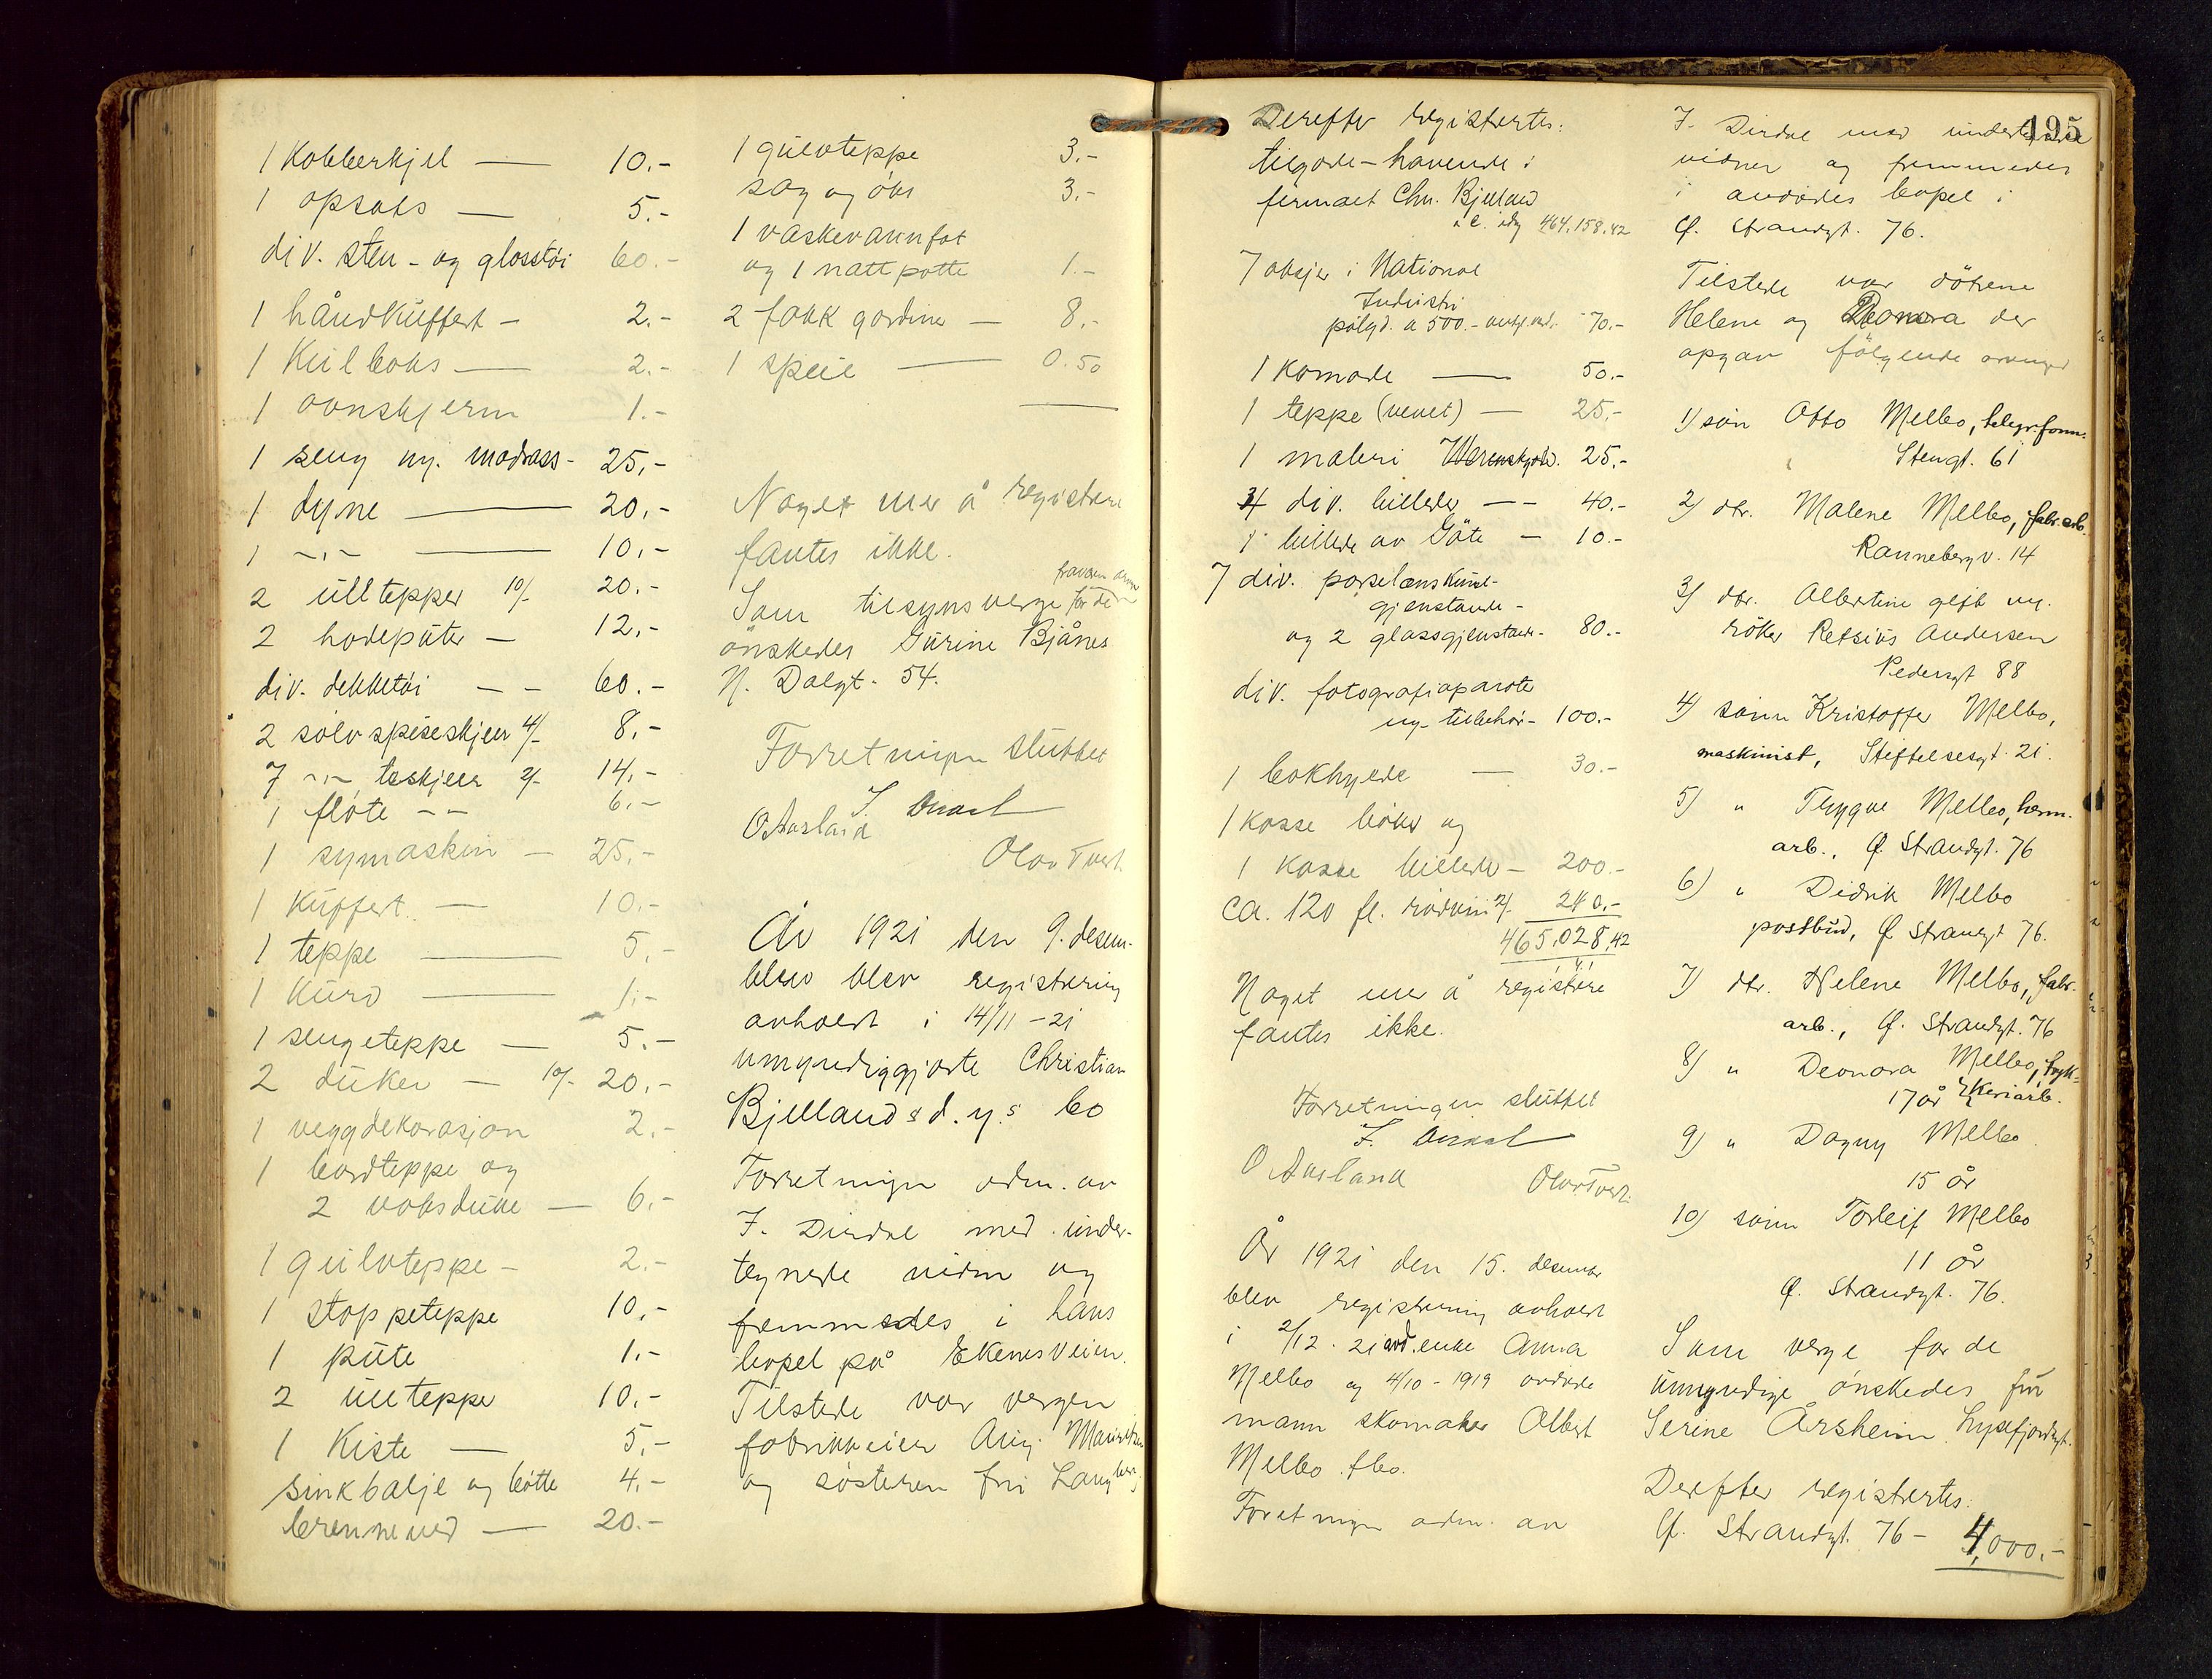 1 Kobberkjel — 10.-
1 opsats — 5.-
div. sten- og glasstøi 60.-
1 håndkuffert - 2.-
1 Kulboks — 2.-
1 ovnskjerm 1.-
1 seng m. madrass - 25,-
1 dyne — 20,-
1 -"- — 10,-
2 ulltepper 10/- 20.-
2 hodeputer — 12,-
div. dekketøi — — 60.-
2 sølv spiseskjeer 4/- 8,-
7 -"- teskjeer 2/- 14,-
1 fløte -- 6.-
1 symaskin — 25,-
1 Kuffert — 10.-
1 teppe — 5.-
1 Kurv — 1.-
1 sengeteppe — 5.-
2 duker — 10/- 20.-
1 veggdekorasjon 2.-
1 bordteppe og
2 voksduke — 6.-
1 gulvteppe - 2.-
1 stoppeteppe 10,-
1 pute 1.-
2 ullteppe 10.-
1 Kiste — 5,-
sinkbalje og bøtte 4.-
brenneved — 20.-
1 gulvteppe 3.-
sag og øks 3.-
1 vaskevannfat
og 1 nattpotte 1.-
2 fakk gardiner — 8.-
1 speil — 0.50
Noget mer å registrere
fantes ikke.
Som tilsynsverge for de
ønskedes Gurine Bjånes
N. Dalgt. 54.
Forretningen sluttet
J. Dirdal
O Aasland
Olav Tveit.
År 1921 den 9. desem-
ber blev registrering
avholdt i 14/11-21
umyndiggjorte Christian
Bjellands d.y.s bo
Forretningen adm. av
J. Dirdal med under-
tegnede vidner og
fremmedes i hans
bopel på Ekenesveien.
Tilstede var vergen
fabrikkeier Aug. Mauritzen
og søsteren fru Langberg
195
Derefter registrertes:
tilgode-havende i
firmaet Chr. Bjelland
464.158.42
7 aksjer i National
Industri
pålyd. a 500.- 70.-
1 Komode — 50.-
1 teppe (vevet) — 25,-
1 maleri Werenskjold. 25.-
4 div. billeder — — 40.-
1 billede av Göte — 10.-
7 div. porselenskunst-
gjenstande -
og 2 glassgjenstande - 80.-
div. fotografiaparater
og tilbehør - 100.-
1 bokhylde — 30.-
1 Kasse bøker og
1 Kasse billeder — 200.-
ca. 120 fl. rødvin 2/- 240.-
465,028,42
Noget mer å registrere
fantes ikke.
Forretningen sluttet
J. Dirdal
O Aasland
Olav Tveit.
År 1921 den 15. desember
blev registrering avholdt
i 2/12. 21 avd. enke Anna
Melbo og 4/10-1919 avdøde
mann skomaker Albert
Melbo fbo.
Forretningen adm. av
J. Dirdal med undertegnede
vidner og fremmedes
i avdødes bopel i
Ø. Strandgt. 76.
Tilstede var døtrene
Helene og Deonora der
opgav følgende arvinger
1) søn Otto Melbo, telegr.form.
Stengt. 61
2) dtr. Malene Melbo, fabr.arb.
Rannebergv. 14
3) dtr. Albertine gift m.
røker Retsius Andersen
Pedersgt 88
4) sønn Kristoffer Melbo,
maskinist, Stiftelsesgt. 21.
5) " Thygve Melbo, herm.
arb., Ø. Strandgt. 76
6) " Didrik Melbo
postbud, Ø Strandgt 76.
7) dtr. Helene Melbo, fabr.
arb., Ø. Strandgt. 76
8) " Deonora Melbo, tryk-
17 år keriarb.
9) " Dagny Melbo
15 år
10) sønn Torleif Melbo
11 år
Ø. Strandgt. 76.
Som verge for de
umyndige ønskedes fru
Serine Årsheim Lysefjordgt.
Derefter registrertes:
Ø. Strandgt. 76 - 4,000.-